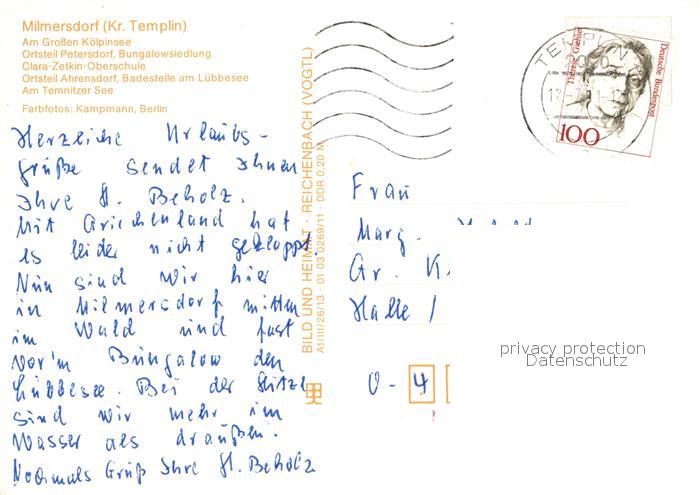 Milmersdorf (Kr. Templin)
Am Großen Kölpinsee
Ortsteil Petersdorf, Bungalowsiedlung
Clara-Zetkin-Oberschule
Ortsteil Ahrensdorf, Badestelle am Lübbesee
Am Temnitzer See
Farbfotos: Kampmann, Berlin
Herzliche Urlaubs-
grüße sendet Ihnen
Ihre H. Beholz.
Mit Griechenland hat
es leider nicht geklappt.
Nun sind wir hier
in Milmersdorf mitten
im Wald und fast
vor'm Bungalow den
Lübbesee. Bei der Hitze
sind wir mehr im
Wasser als draußen.
Nochmals Gruß Ihre H. Beholz
BILD UND HEIMAT · REICHENBACH (VOGTL)
A1/III/26/13 · 01 03 0269/11 · DDR 0,20 M
TEMPLIN
Therese Giehse
Deutsche Bundespost
100
Frau
Marg.
Gr. K
Halle /
O - 4
privacy protection
Datenschutz